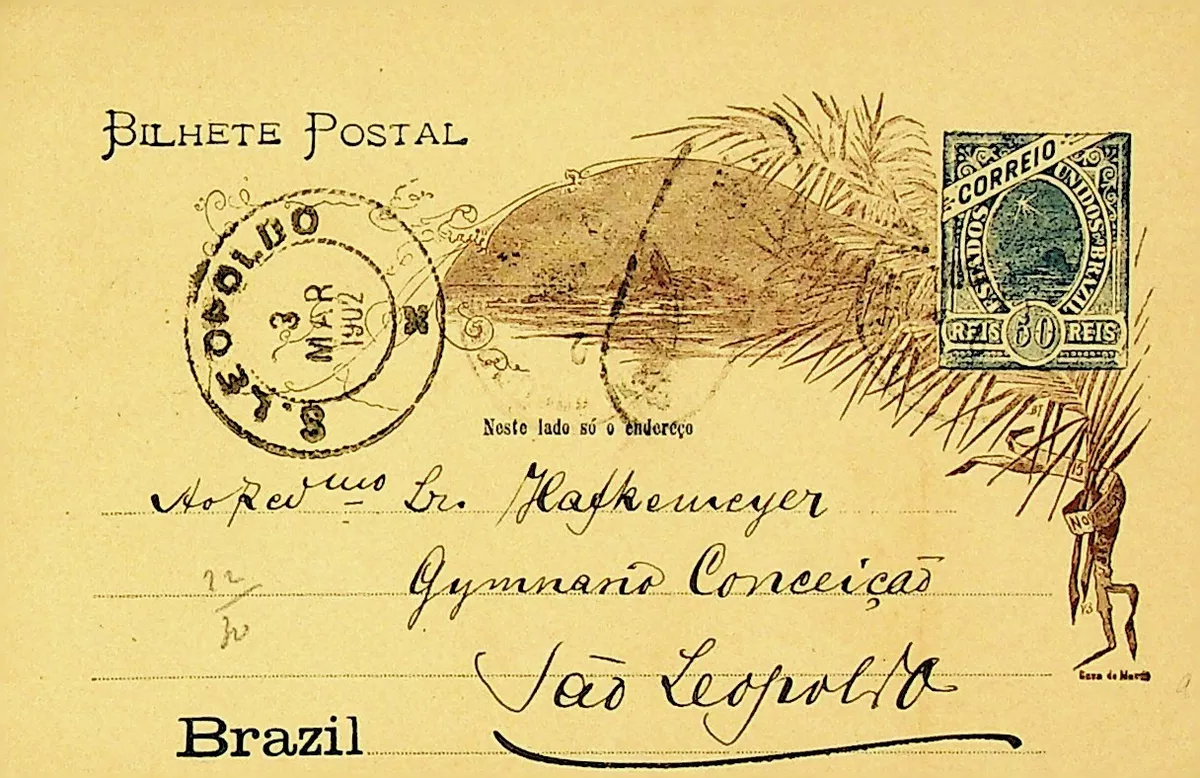 BILHETE POSTAL
CORREIO
ESTADOS UNIDOS DO BRAZIL
REIS 50 REIS
S. LEOPOLDO
3
MAR
1902
Neste lado só o endereço
Ao Revmo Sr. Hafkemeyer
Gymnasio Conceição
São Leopoldo
Brazil
Casa da Moeda